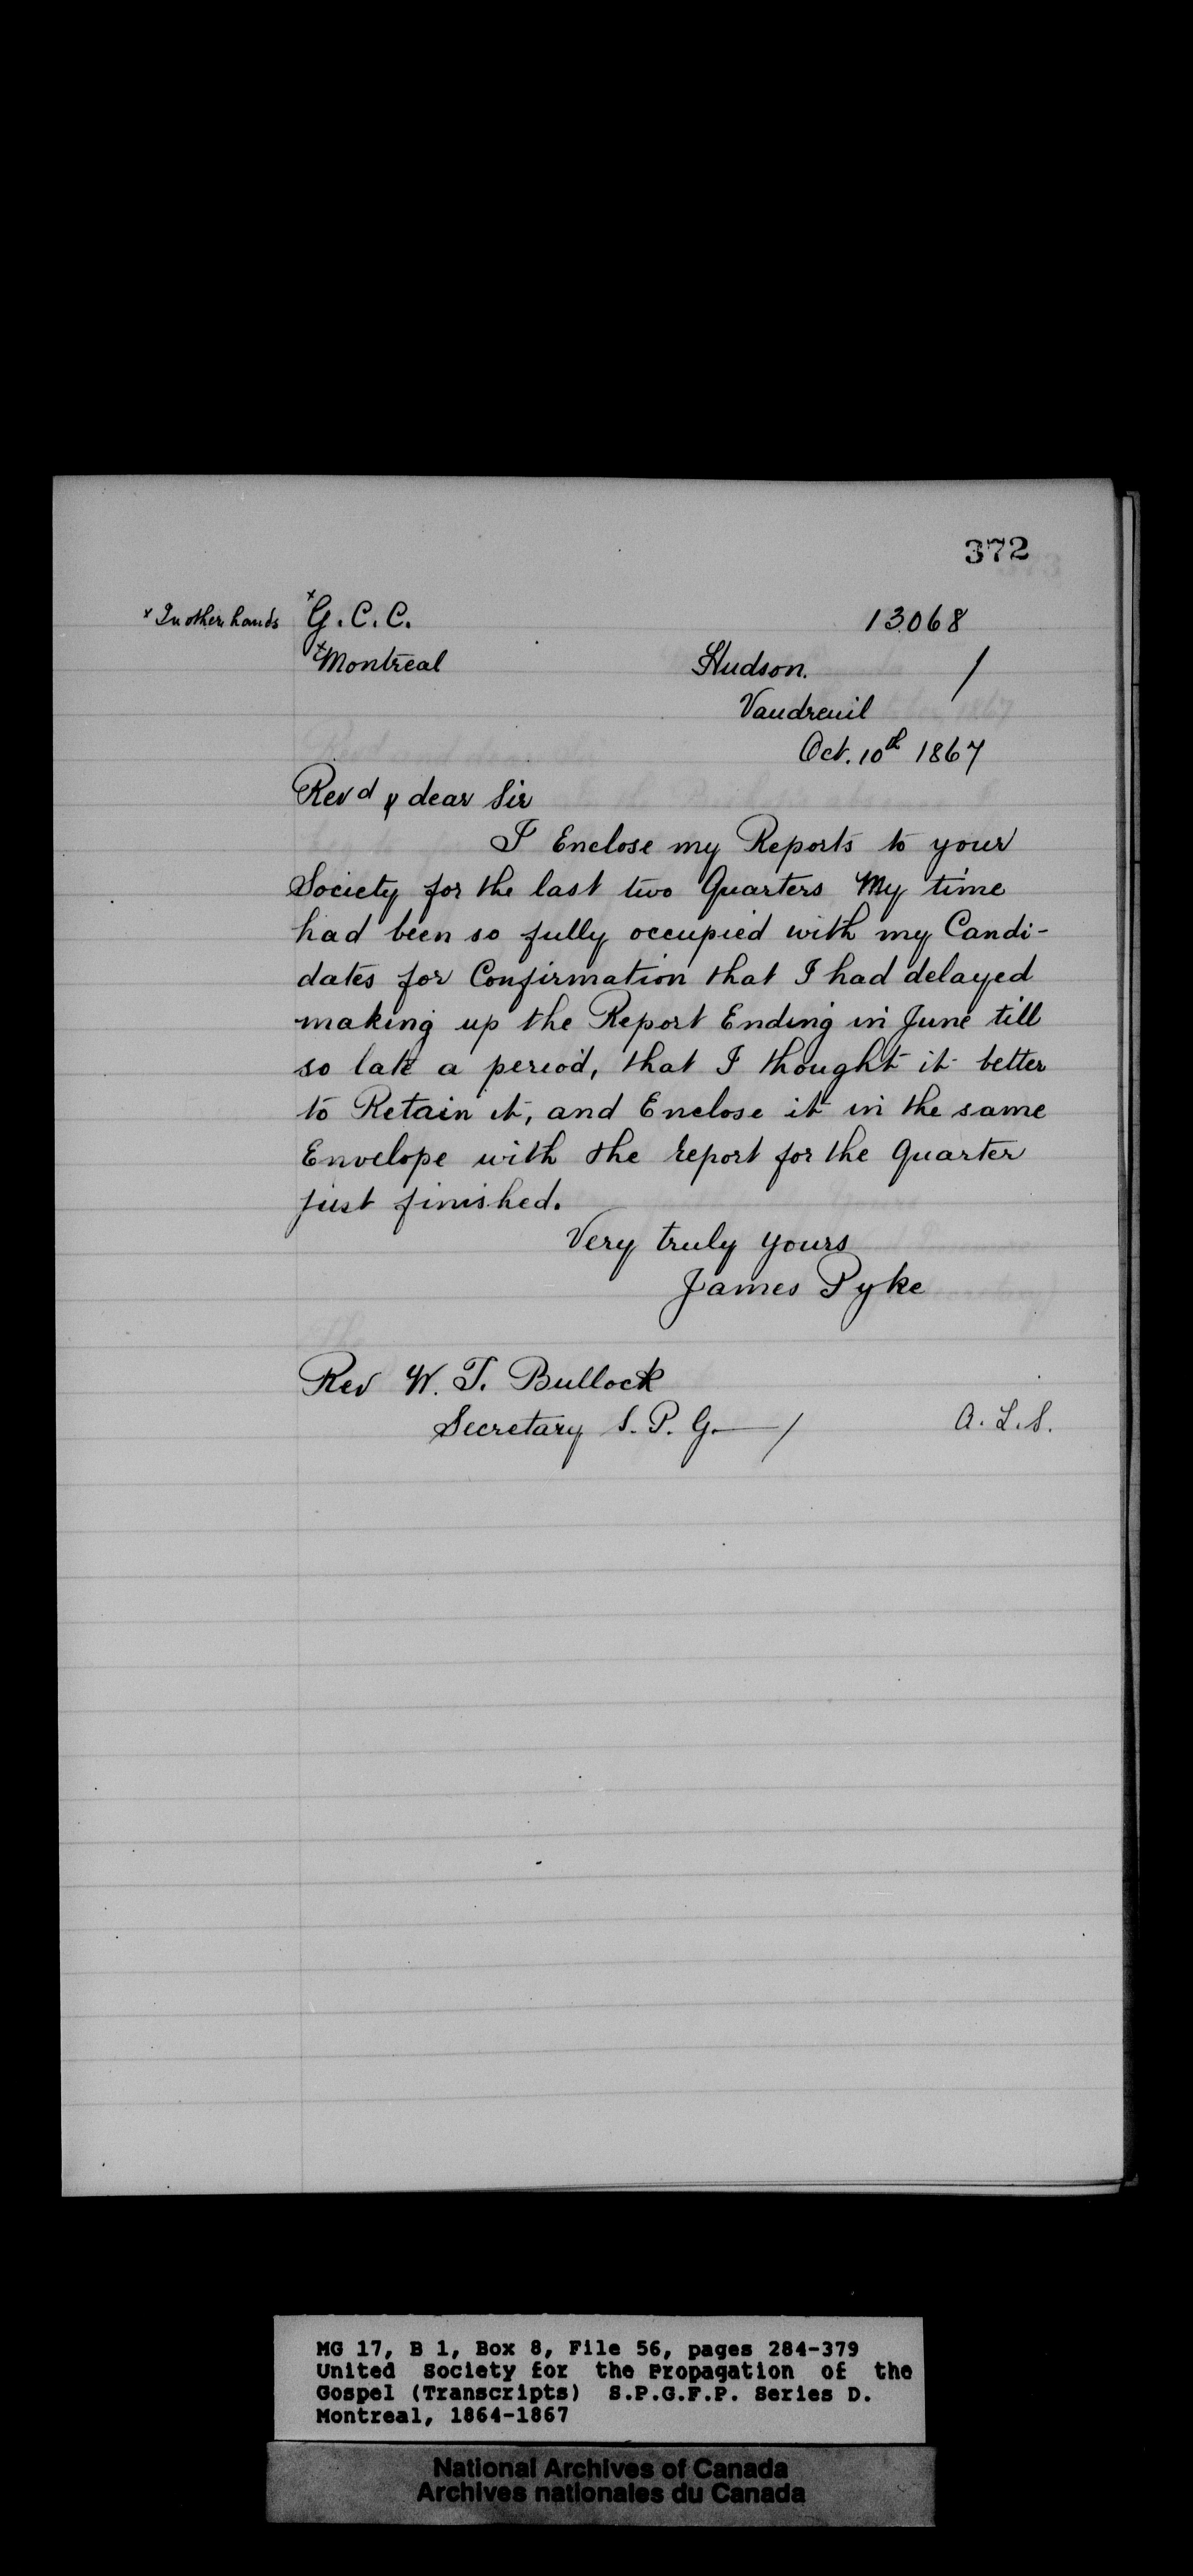 372
× In other hands ×G.C.C. 13068
×Montreal Hudson. /
Vaudreuil
Oct. 10th 1867
Revd & dear Sir
I Enclose my Reports to your
Society for the last two Quarters My time
had been so fully occupied with my Candi-
dates for Confirmation that I had delayed
making up the Report Ending in June till
so late a period, that I thought it better
to Retain it, and Enclose it in the same
Envelope with the report for the Quarter
just finished.
Very truly yours
James Pyke
Rev W. T. Bullock
Secretary S. P. G. — / A. L. S.
MG 17, B 1, Box 8, File 56, pages 284-379
United Society for the Propagation of the
Gospel (Transcripts) S.P.G.F.P. Series D.
Montreal, 1864-1867
National Archives of Canada
Archives nationales du Canada